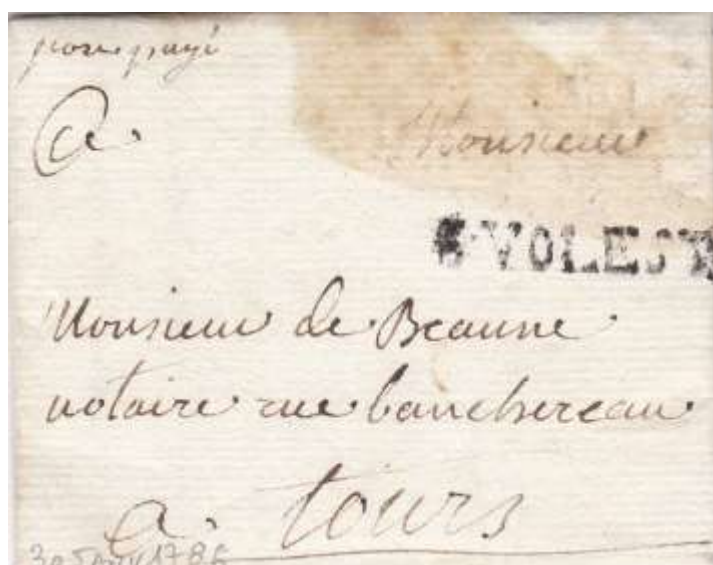 port payé
A Monsieur
VOLEST
Monsieur de Beaune
notaire rue banchereau
a tours